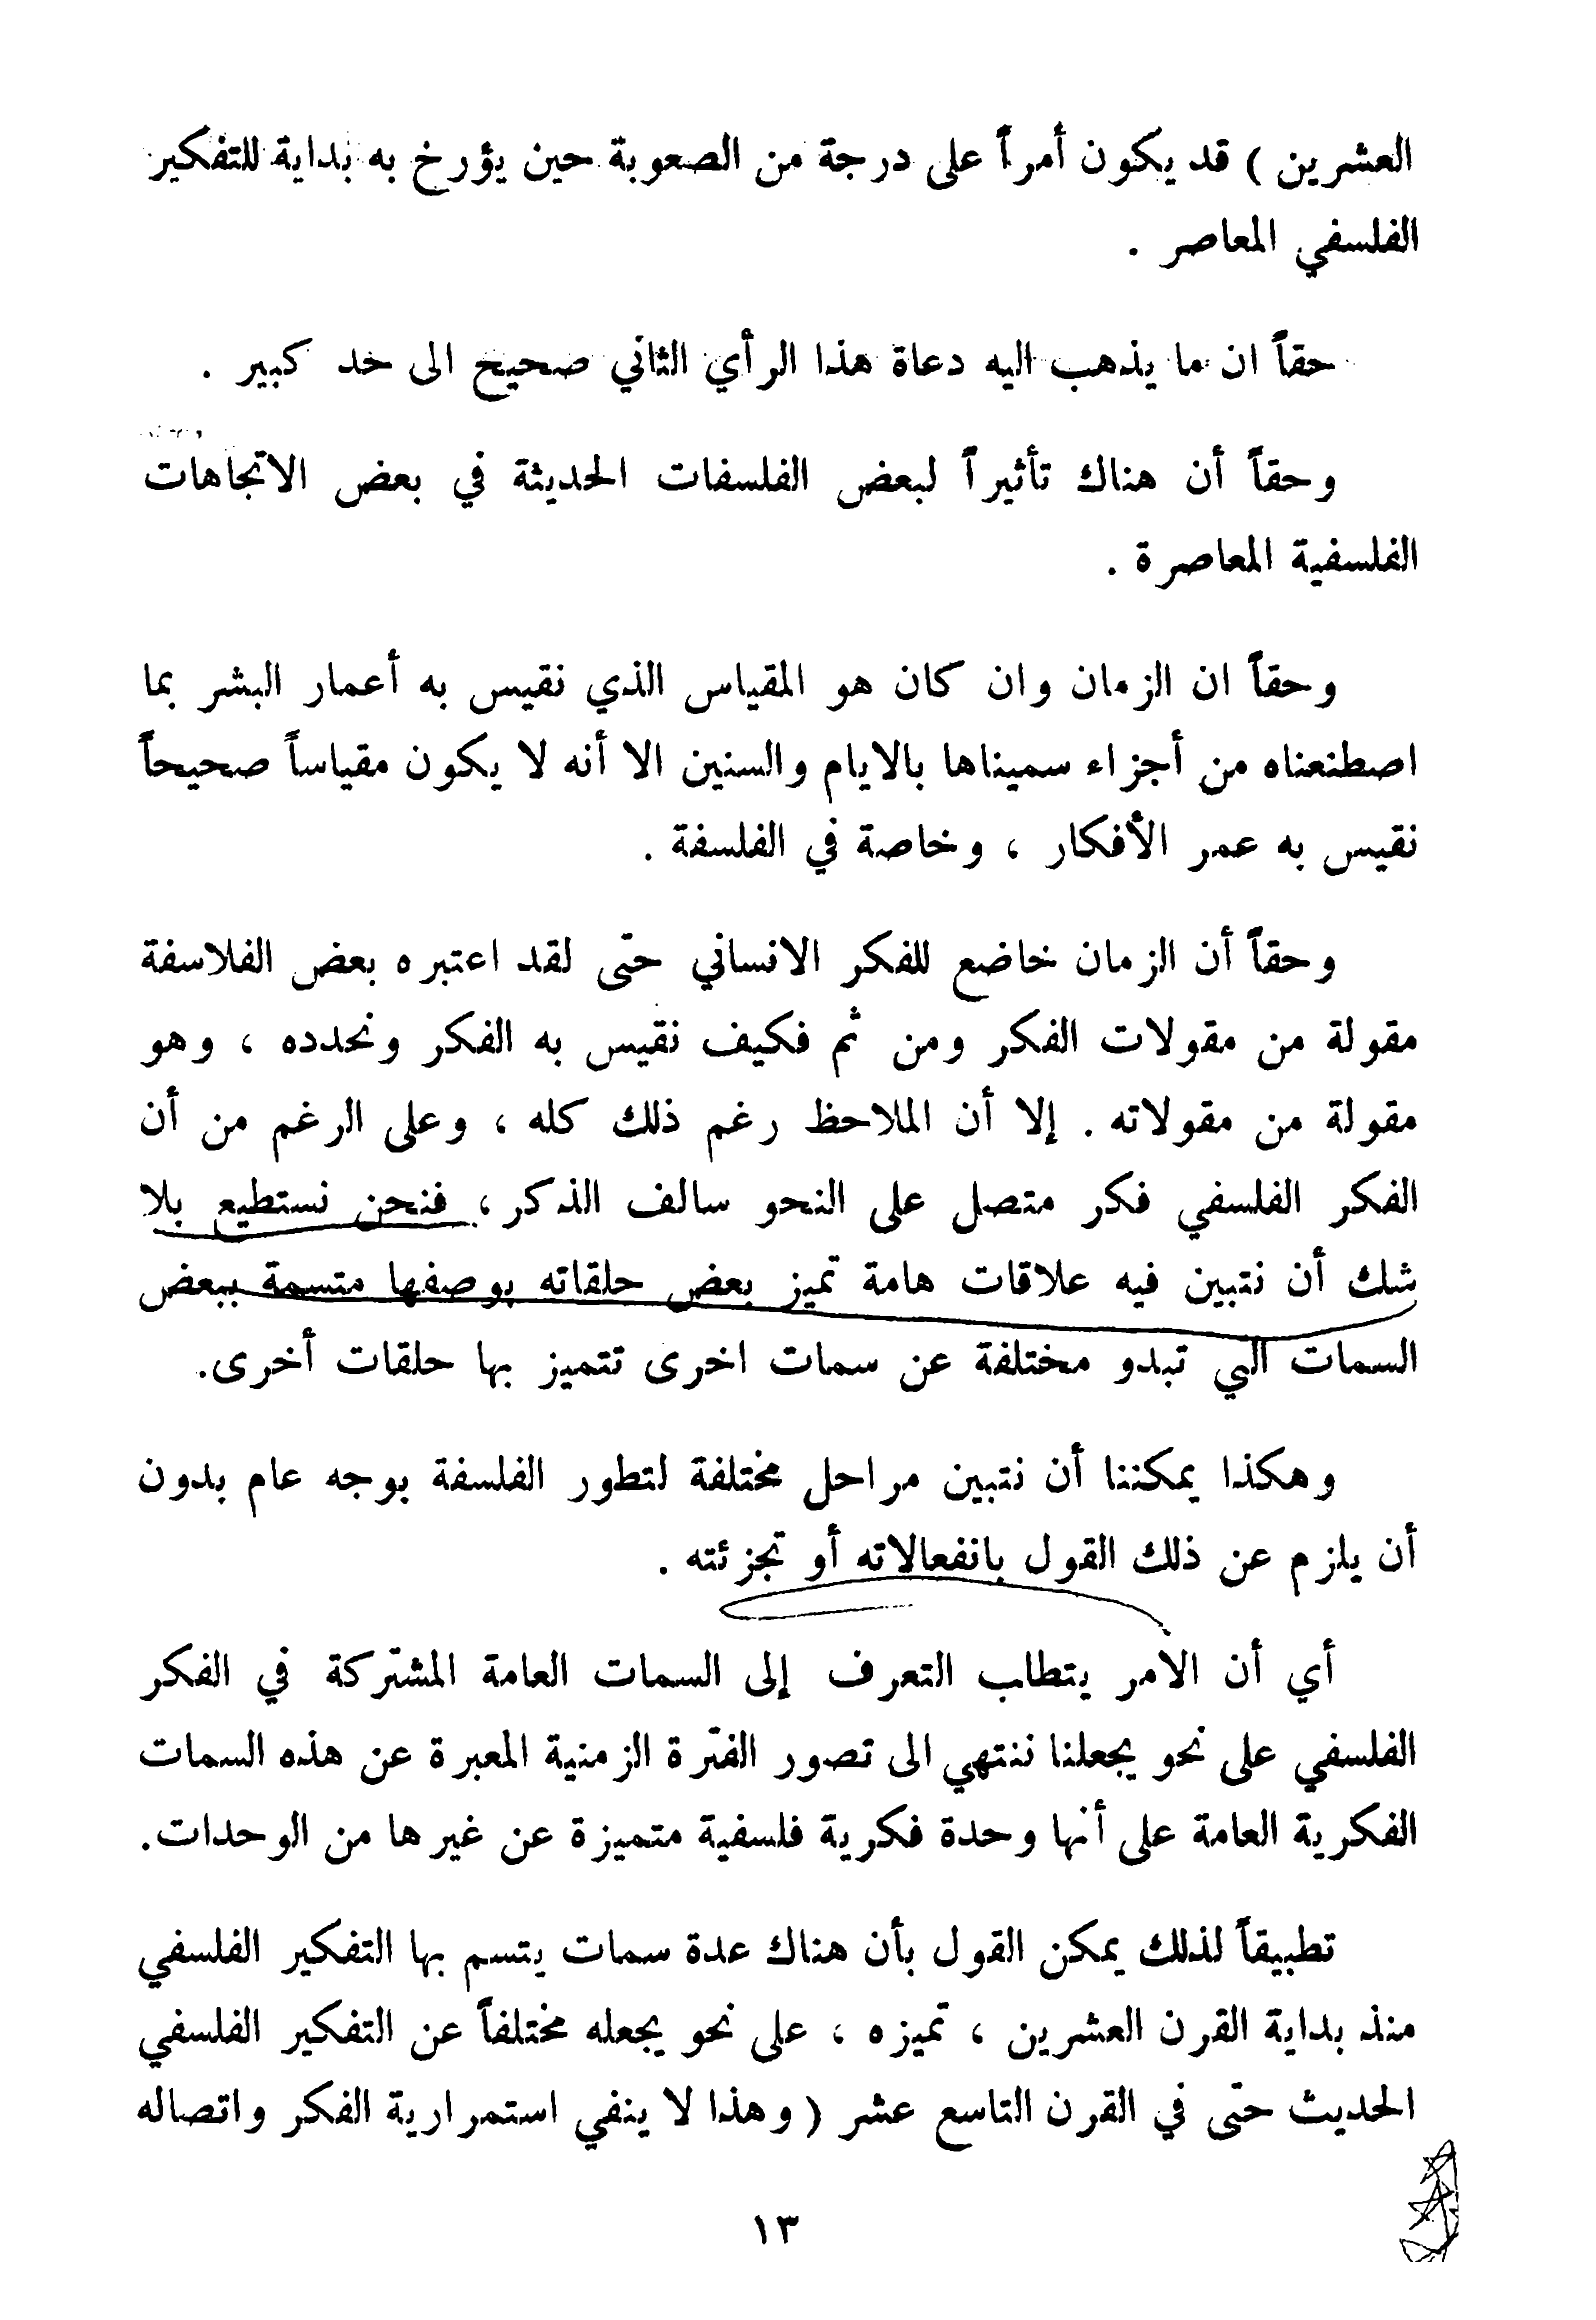 العشرين ) قد يكون أمراً على درجة من الصعوبة حين يؤرخ به بداية للتفكير
الفلسفي المعاصر .
حقاً ان ما يذهب اليه دعاة هذا الرأي الثاني صحيح الى حد كبير .
وحقاً أن هناك تأثيراً لبعض الفلسفات الحديثة في بعض الاتجاهات
الفلسفية المعاصرة .
وحقاً ان الزمان وان كان هو المقياس الذي نقيس به أعمار البشر بما
اصطنعناه من أجزاء سميناها بالايام والسنين الا أنه لا يكون مقياساً صحيحاً
نقيس به عمر الأفكار ، وخاصة في الفلسفة .
وحقاً أن الزمان خاضع للفكر الانساني حتى لقد اعتبره بعض الفلاسفة
مقولة من مقولات الفكر ومن ثم فكيف نقيس به الفكر ونحدده ، وهو
مقولة من مقولاته . إلا أن الملاحظ رغم ذلك كله ، وعلى الرغم من أن
الفكر الفلسفي فكر متصل على النحو سالف الذكر ، فنحن نستطيع بلا
شك أن نتبين فيه علاقات هامة تميز بعض حلقاته بوصفها متسمة ببعض
السمات التي تبدو مختلفة عن سمات اخرى تتميز بها حلقات أخرى.
وهكذا يمكننا أن نتبين مراحل مختلفة لتطور الفلسفة بوجه عام بدون
أن يلزم عن ذلك القول بانفعالاته أو تجزئته .
أي أن الامر يتطلب التعرف إلى السمات العامة المشتركة في الفكر
الفلسفي على نحو يجعلنا ننتهي الى تصور الفترة الزمنية المعبرة عن هذه السمات
الفكرية العامة على أنها وحدة فكرية فلسفية متميزة عن غيرها من الوحدات.
تطبيقاً لذلك يمكن القول بأن هناك عدة سمات يتسم بها التفكير الفلسفي
منذ بداية القرن العشرين ، تميزه ، على نحو يجعله مختلفاً عن التفكير الفلسفي
الحديث حتى في القرن التاسع عشر ( وهذا لا ينفي استمرارية الفكر واتصاله
١٣